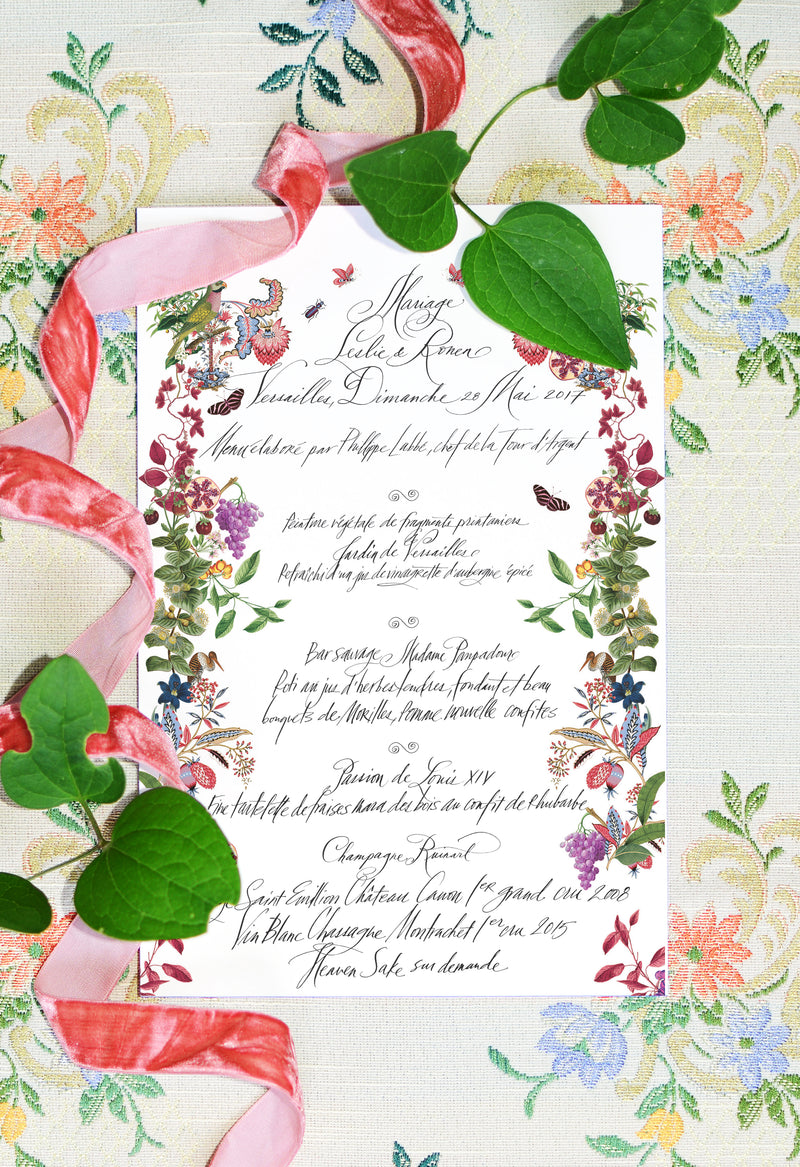 Mariage
Leslie & Ronen
Versailles, Dimanche 28 Mai 2017
Menu élaboré par Philippe Labbé, chef de la Tour d'Argent
Peinture végétale de fragments printaniers
Jardin de Versailles
Rafraîchi d'un jus de vinaigrette d'aubergine épicée
Bar sauvage Madame Pompadour
Roti au jus d'herbes tendres, fondant et beau
bouquets de Morilles, Pomme nouvelle confites
Passion de Louis XIV
Fine tartelette de fraises mara des bois au confit de Rhubarbe
Champagne Ruinart
Saint Emilion Château Canon 1er grand cru 2008
Vin Blanc Chassagne Montrachet 1er cru 2015
Heaven Sake sur demande